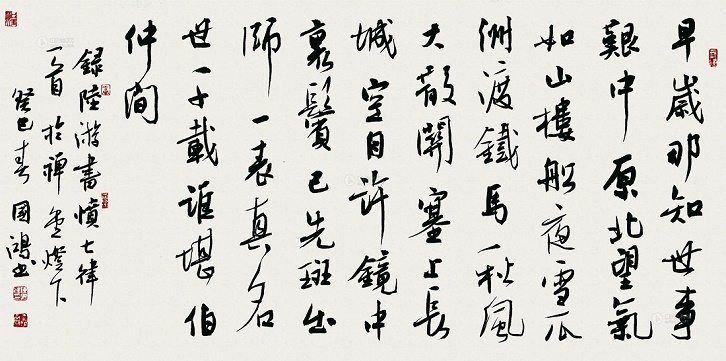 早歲那知世事
艱中原北望氣
如山樓船夜雪瓜
洲渡鐵馬秋風
大散關塞上長
城空自許鏡中
衰鬢已先斑出
師一表真名
世千載誰堪伯
仲間
錄陸游書憤七律
一首於禪燈下
癸巳春國鴻書